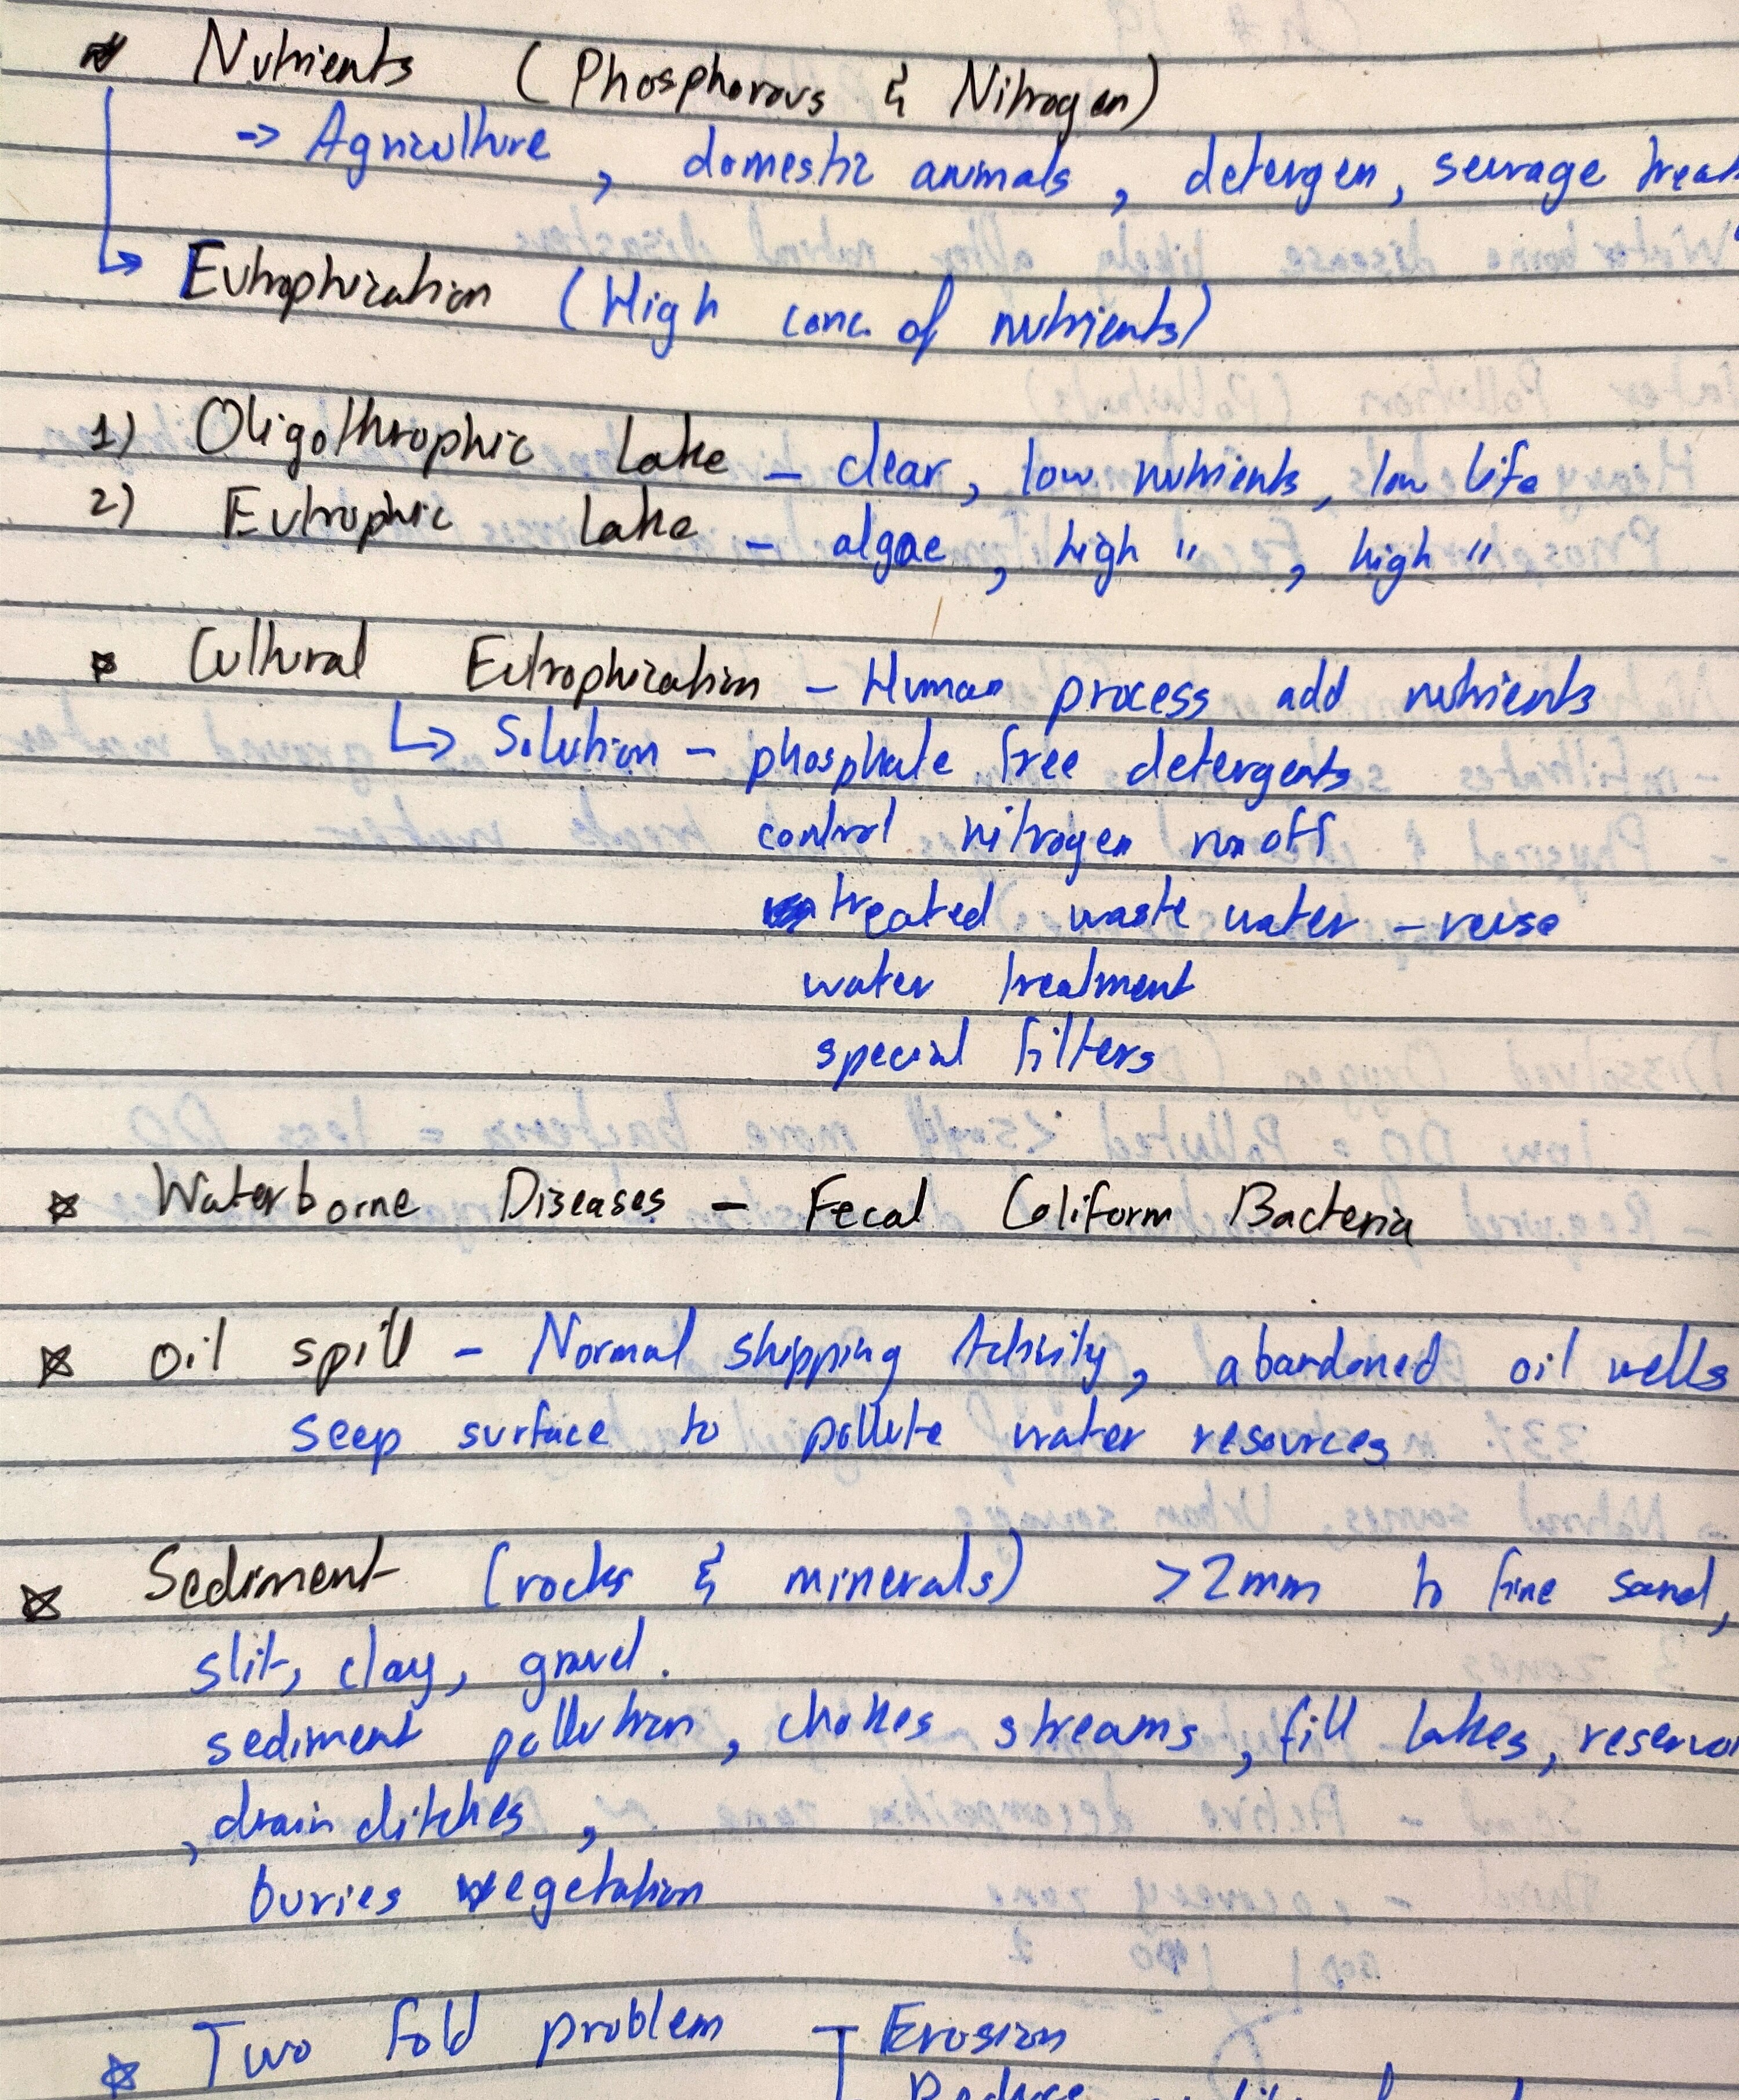 Nutrients (Phosphorous & Nitrogen)
-> Agriculture, domestic animals, detergen, sewrage treat
Eutrophization (High conc. of nutrients)
1) Oligothrophic Lake - clear, low nutrients, low life
2) Eutrophic Lake - algae, high ", high "
Cultural Eutrophization - Human process add nutrients
Solution - phosphate free detergents
control nitrogen runoff
treated waste water - reuse
water treatment
special filters
Waterborne Diseases - Fecal Coliform Bacteria
Oil spill - Normal shipping Activity, abandoned oil wells
seep surface to pollute water resources
Sediment (rocks & minerals) >2mm to fine sand,
slit, clay, gravel.
sediment pollution, chokes streams, fill lakes, reservoi
, drain ditches,
buries vegetation
Two fold problem Erosion
Reduce